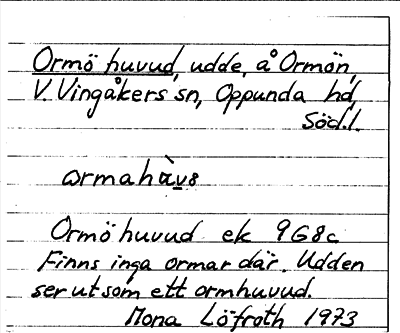 Ormö huvud, udde, å Ormön,
V. Vingåkers sn, Oppunda hd,
Söd.l.
ormahàvə
Ormö huvud ek 9G8c
Finns inga ormar där. Udden
ser ut som ett ormhuvud.
Mona Löfroth 1973